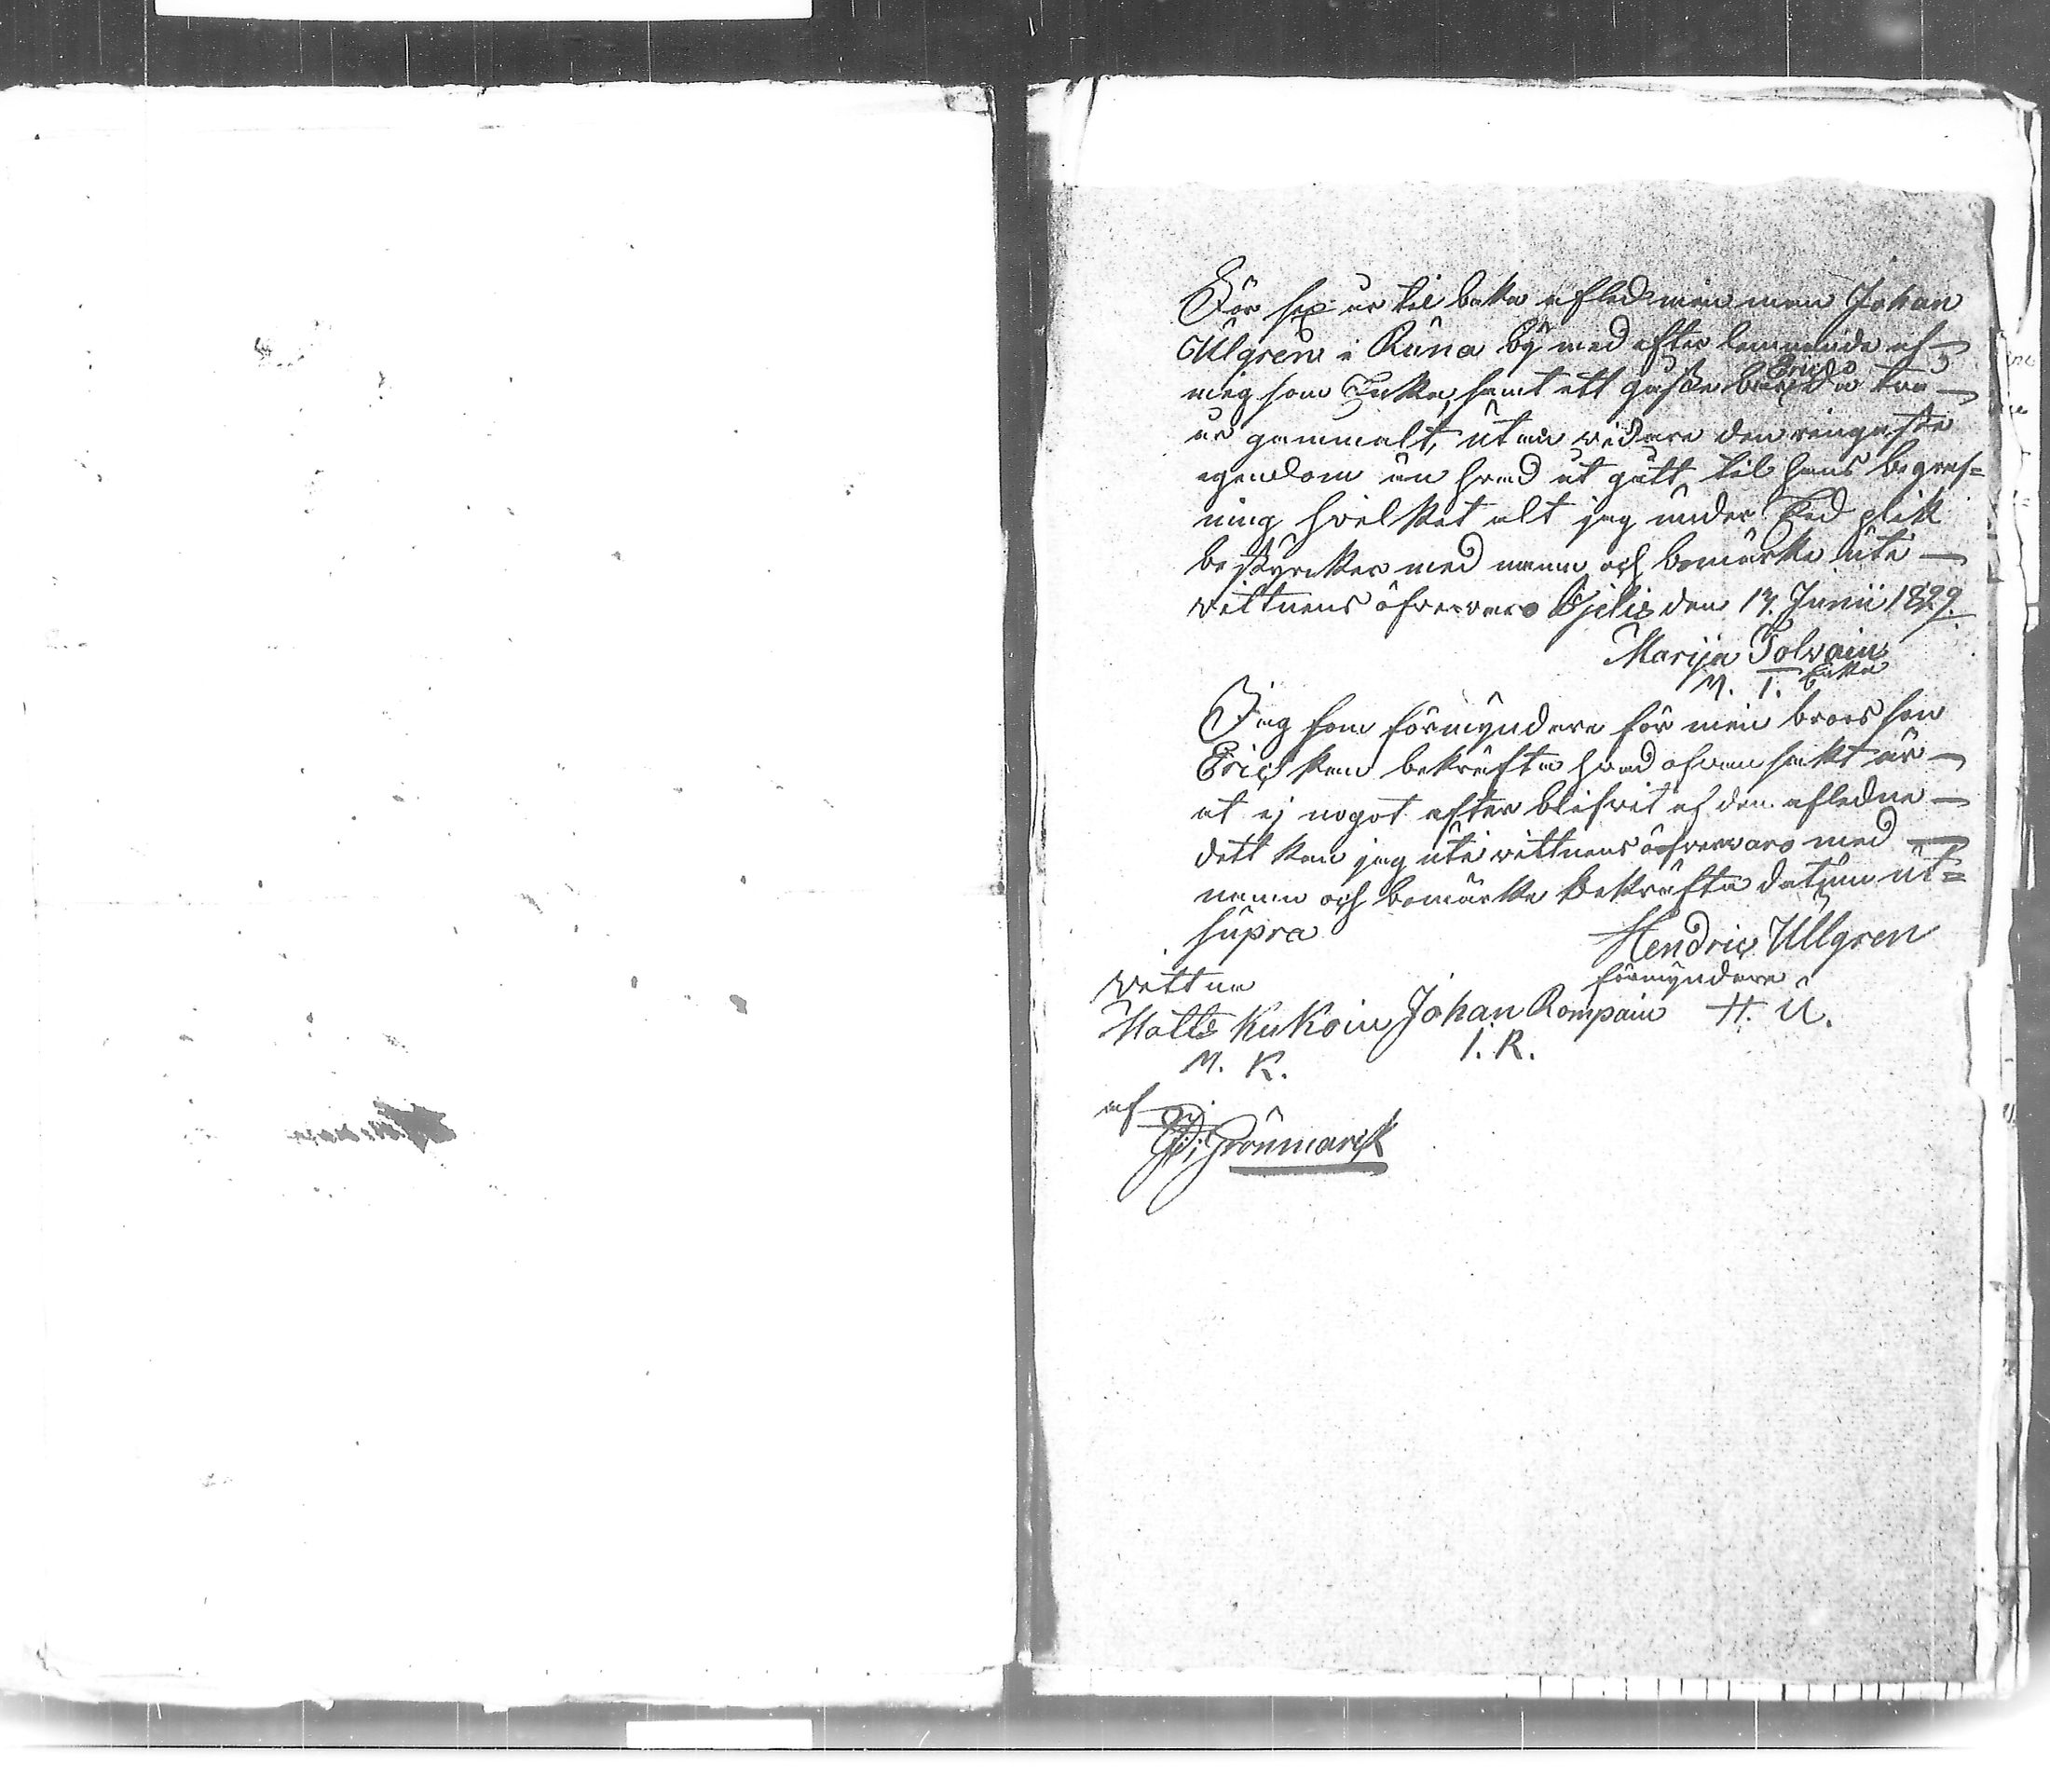 För sex år til baka afled min man Johan
Ulgren i Räina by med efter lemnande af
mig som Enka, samt ett gosse barn då två
Eric
år gammalt, utan vidare den ringaste
egendom än hvad åt gått til hans begraf=
ning hvilket alt jag under Ed plikt
bestyrcker med namn och bomärke uti
vittnens öfvervaro Kjelis den 17. Junii 1829.
Marija Tolvain
Enka
M. T.
Jag som förmyndare för min brors son
Eric kan bekräfta hvad ofvan sakt är
at ej nogot efter blifvit af den aflednе
dett kan jag uti vittnens öfvervaro med
namn och bomärke bekräfta datum ut=
supra
Hendric Ullgren
förmyndare
H. U.
vittna
Matts Kukoin Johan Rompain
M. K. I. R.
af
Grönmarck